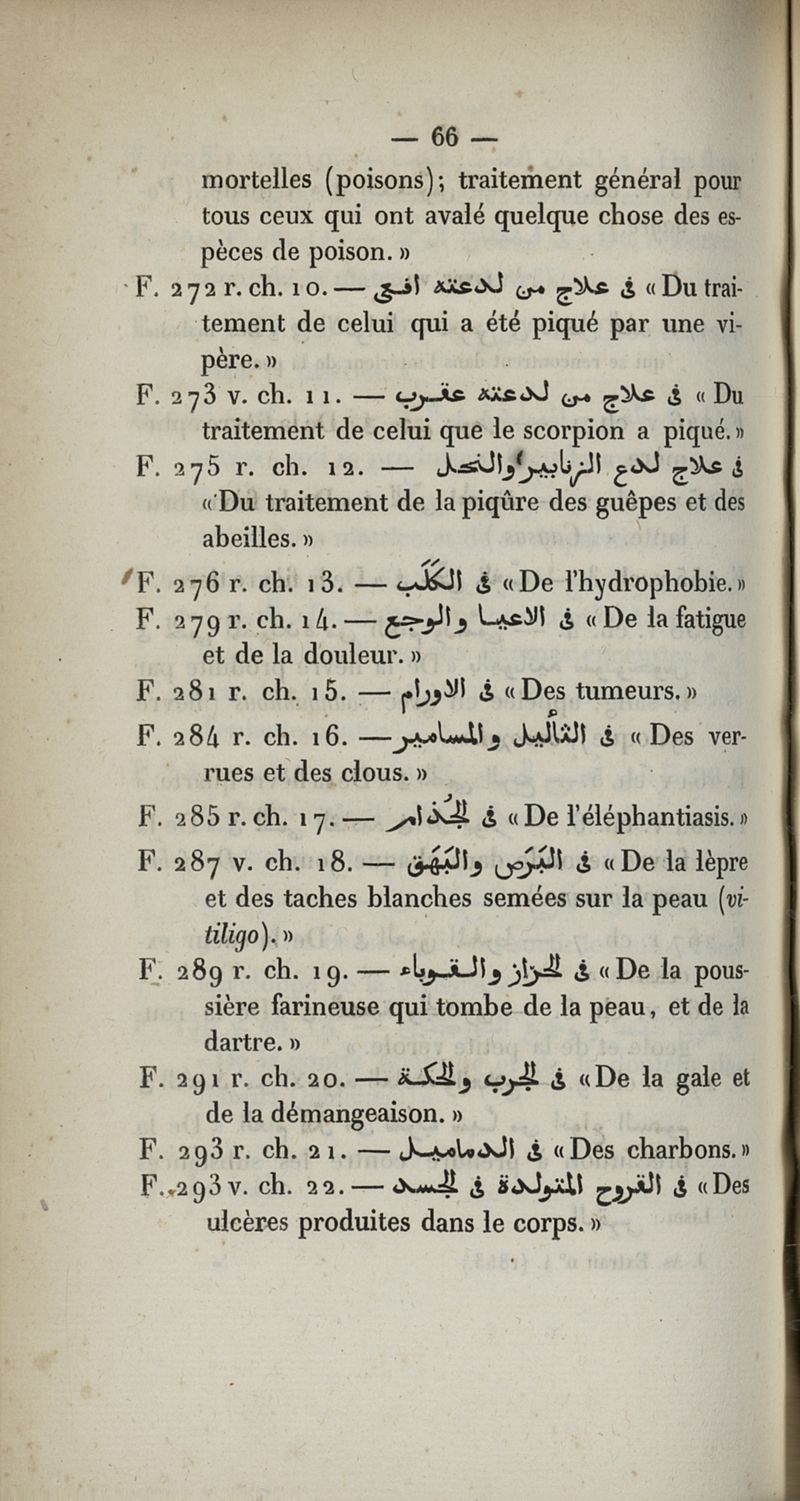 — 66 —
mortelles (poisons); traitement général pour
tous ceux qui ont avalé quelque chose des es-
pèces de poison. »
F. 272 r. ch. 10. — في علاج من لدغته افعى « Du trai-
tement de celui qui a été piqué par une vi-
père. »
F. 273 v. ch. 11. — في علاج من لدغته عقرب « Du
traitement de celui que le scorpion a piqué. »
F. 275 r. ch. 12. — في علاج لدغ الزنابير والنحل
« Du traitement de la piqûre des guêpes et des
abeilles. »
F. 276 r. ch. 13. — في الكلب « De l'hydrophobie. »
F. 279 r. ch. 14. — في الاعيا والوجع « De la fatigue
et de la douleur. »
F. 281 r. ch. 15. — في الاورام « Des tumeurs. »
F. 284 r. ch. 16. — في الثاليل والمسامير « Des ver-
rues et des clous. »
F. 285 r. ch. 17. — في الجُذام « De l'éléphantiasis. »
F. 287 v. ch. 18. — في البَرَص والبَهَق « De la lèpre
et des taches blanches semées sur la peau (vi-
tiligo). »
F. 289 r. ch. 19. — في الحزاز والقوباء « De la pous-
sière farineuse qui tombe de la peau, et de la
dartre. »
F. 291 r. ch. 20. — في الجرب والحكة « De la gale et
de la démangeaison. »
F. 293 r. ch. 21. — في الدماميل « Des charbons. »
F. 293 v. ch. 22. — في القروح المتولدة في الجسد « Des
ulcères produites dans le corps. »